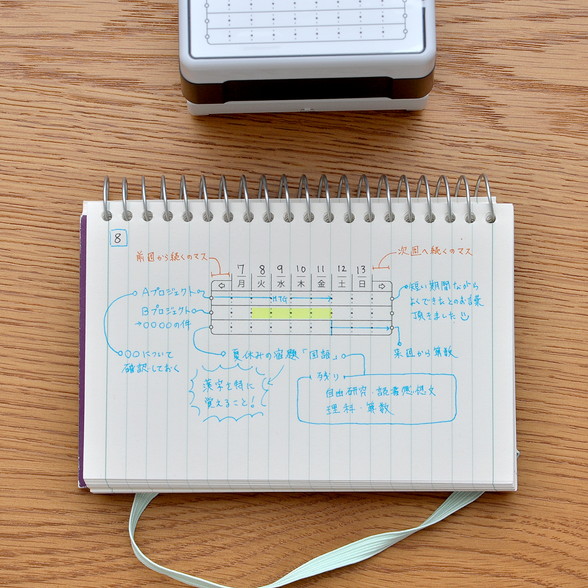 8
前週から続くのマス
次週へ続くのマス
7 8 9 10 11 12 13
月 火 水 木 金 土 日
Aプロジェクト
MTG
短い期間ながら
よくできたとのお言葉
頂きました
Bプロジェクト
→〇〇〇〇の件
〇〇について
確認しておく
夏休みの宿題「国語」
来週から算数
漢字を特に
覚えること!
残り
自由研究・読書感想文
理科・算数